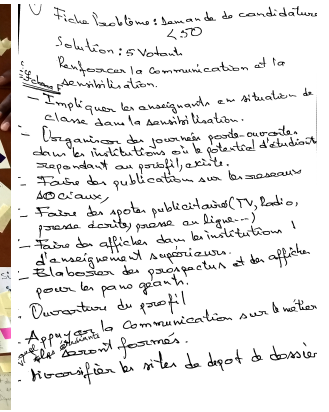 Fiche Problème : Demande de candidature
< 50
Solution : 5 Votants
Renforcer la communication et la
sensibilisation.
- Impliquer les enseignants en situation de
classe dans la sensibilisation.
- Organiser des journées porte-ouvertes
dans les institutions où le potentiel d'étudiants
repondant au profil, existe.
- Faire des publication sur les reseaux
sociaux,
- Faire des spotes publicitaires (TV, Radio,
presse écrite, presse en ligne...)
- Faire des affiches dans les institutions
d'enseignement supérieurs.
- Elaborer des prospectus et des affiches
pour les pano géants.
- Ouverture du profil
- Appuyer la communication sur le métier
seront formés.
- Diversifier les sites de depot de dossier